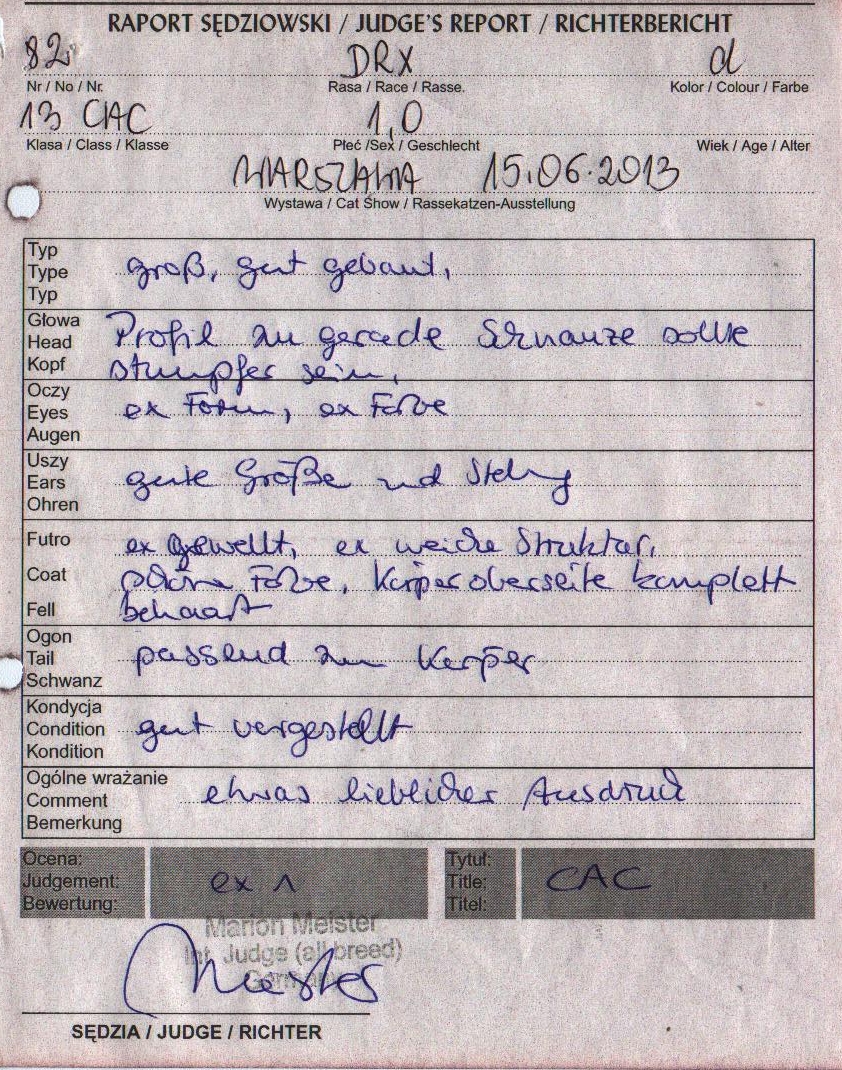 RAPORT SĘDZIOWSKI / JUDGE'S REPORT / RICHTERBERICHT
82 DRX d
Nr / No / Nr. Rasa / Race / Rasse. Kolor / Colour / Farbe
13 CAC 1,0
Klasa / Class / Klasse Płeć /Sex / Geschlecht Wiek / Age / Alter
WARSZAWA 15.06.2013
Wystawa / Cat Show / Rassekatzen-Ausstellung
Typ
Type groß, gut gebaut,
Typ
Głowa
Head Profil zu gerade Schnauze sollte
Kopf stumpfer sein,
Oczy
Eyes ex Form, ex Farbe
Augen
Uszy
Ears gute Größe und Stellung
Ohren
Futro ex gewellt, ex weiche Struktur,
Coat schöne Farbe, Körperoberseite komplett
Fell behaart
Ogon
Tail passend zum Körper
Schwanz
Kondycja
Condition gut vorgestellt
Kondition
Ogólne wrażanie
Comment etwas lieblicher Ausdruck
Bemerkung
Ocena: Tytuł:
Judgement: ex 1 Title: CAC
Bewertung: Titel:
Marion Meister
Int. Judge (all breed)
Germany
Meister
SĘDZIA / JUDGE / RICHTER